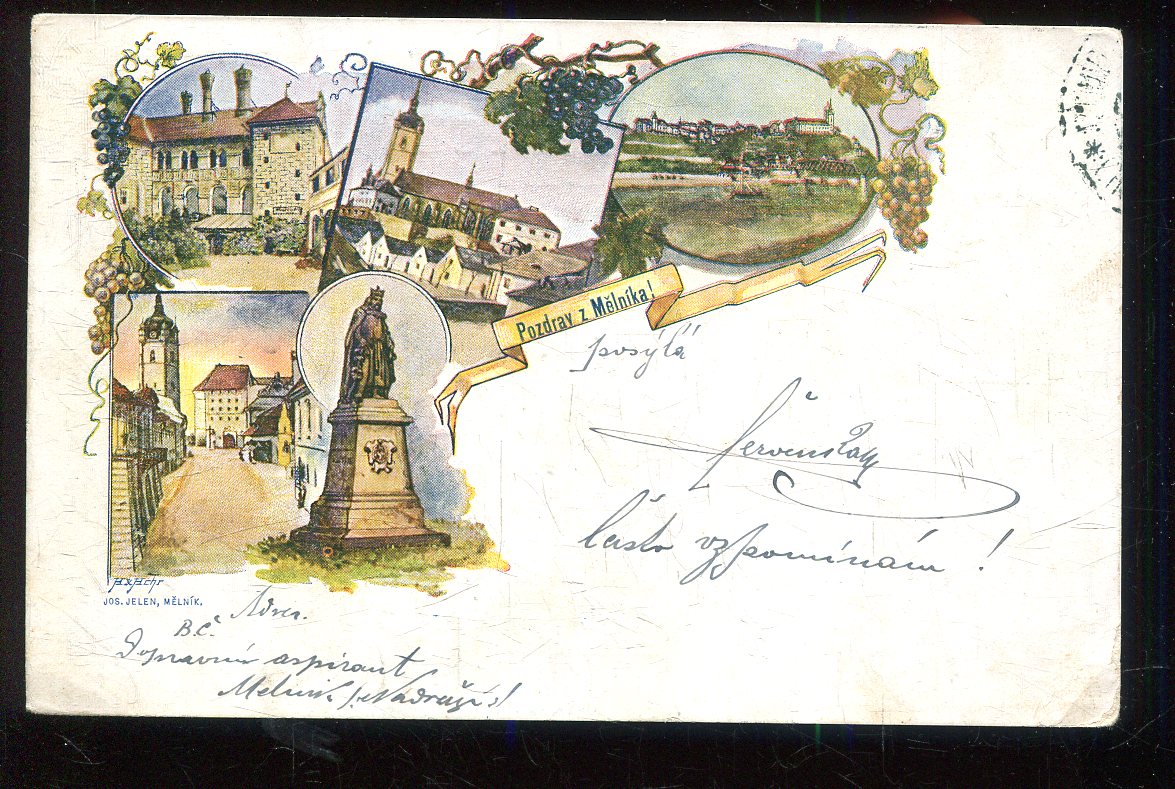 Pozdrav z Mělníka!
posýlá
Červenský
často vzpomínám !
JOS. JELEN, MĚLNÍK.
Adres.
B.Č.
Dopravní aspirant
Mělník / Nádraží /